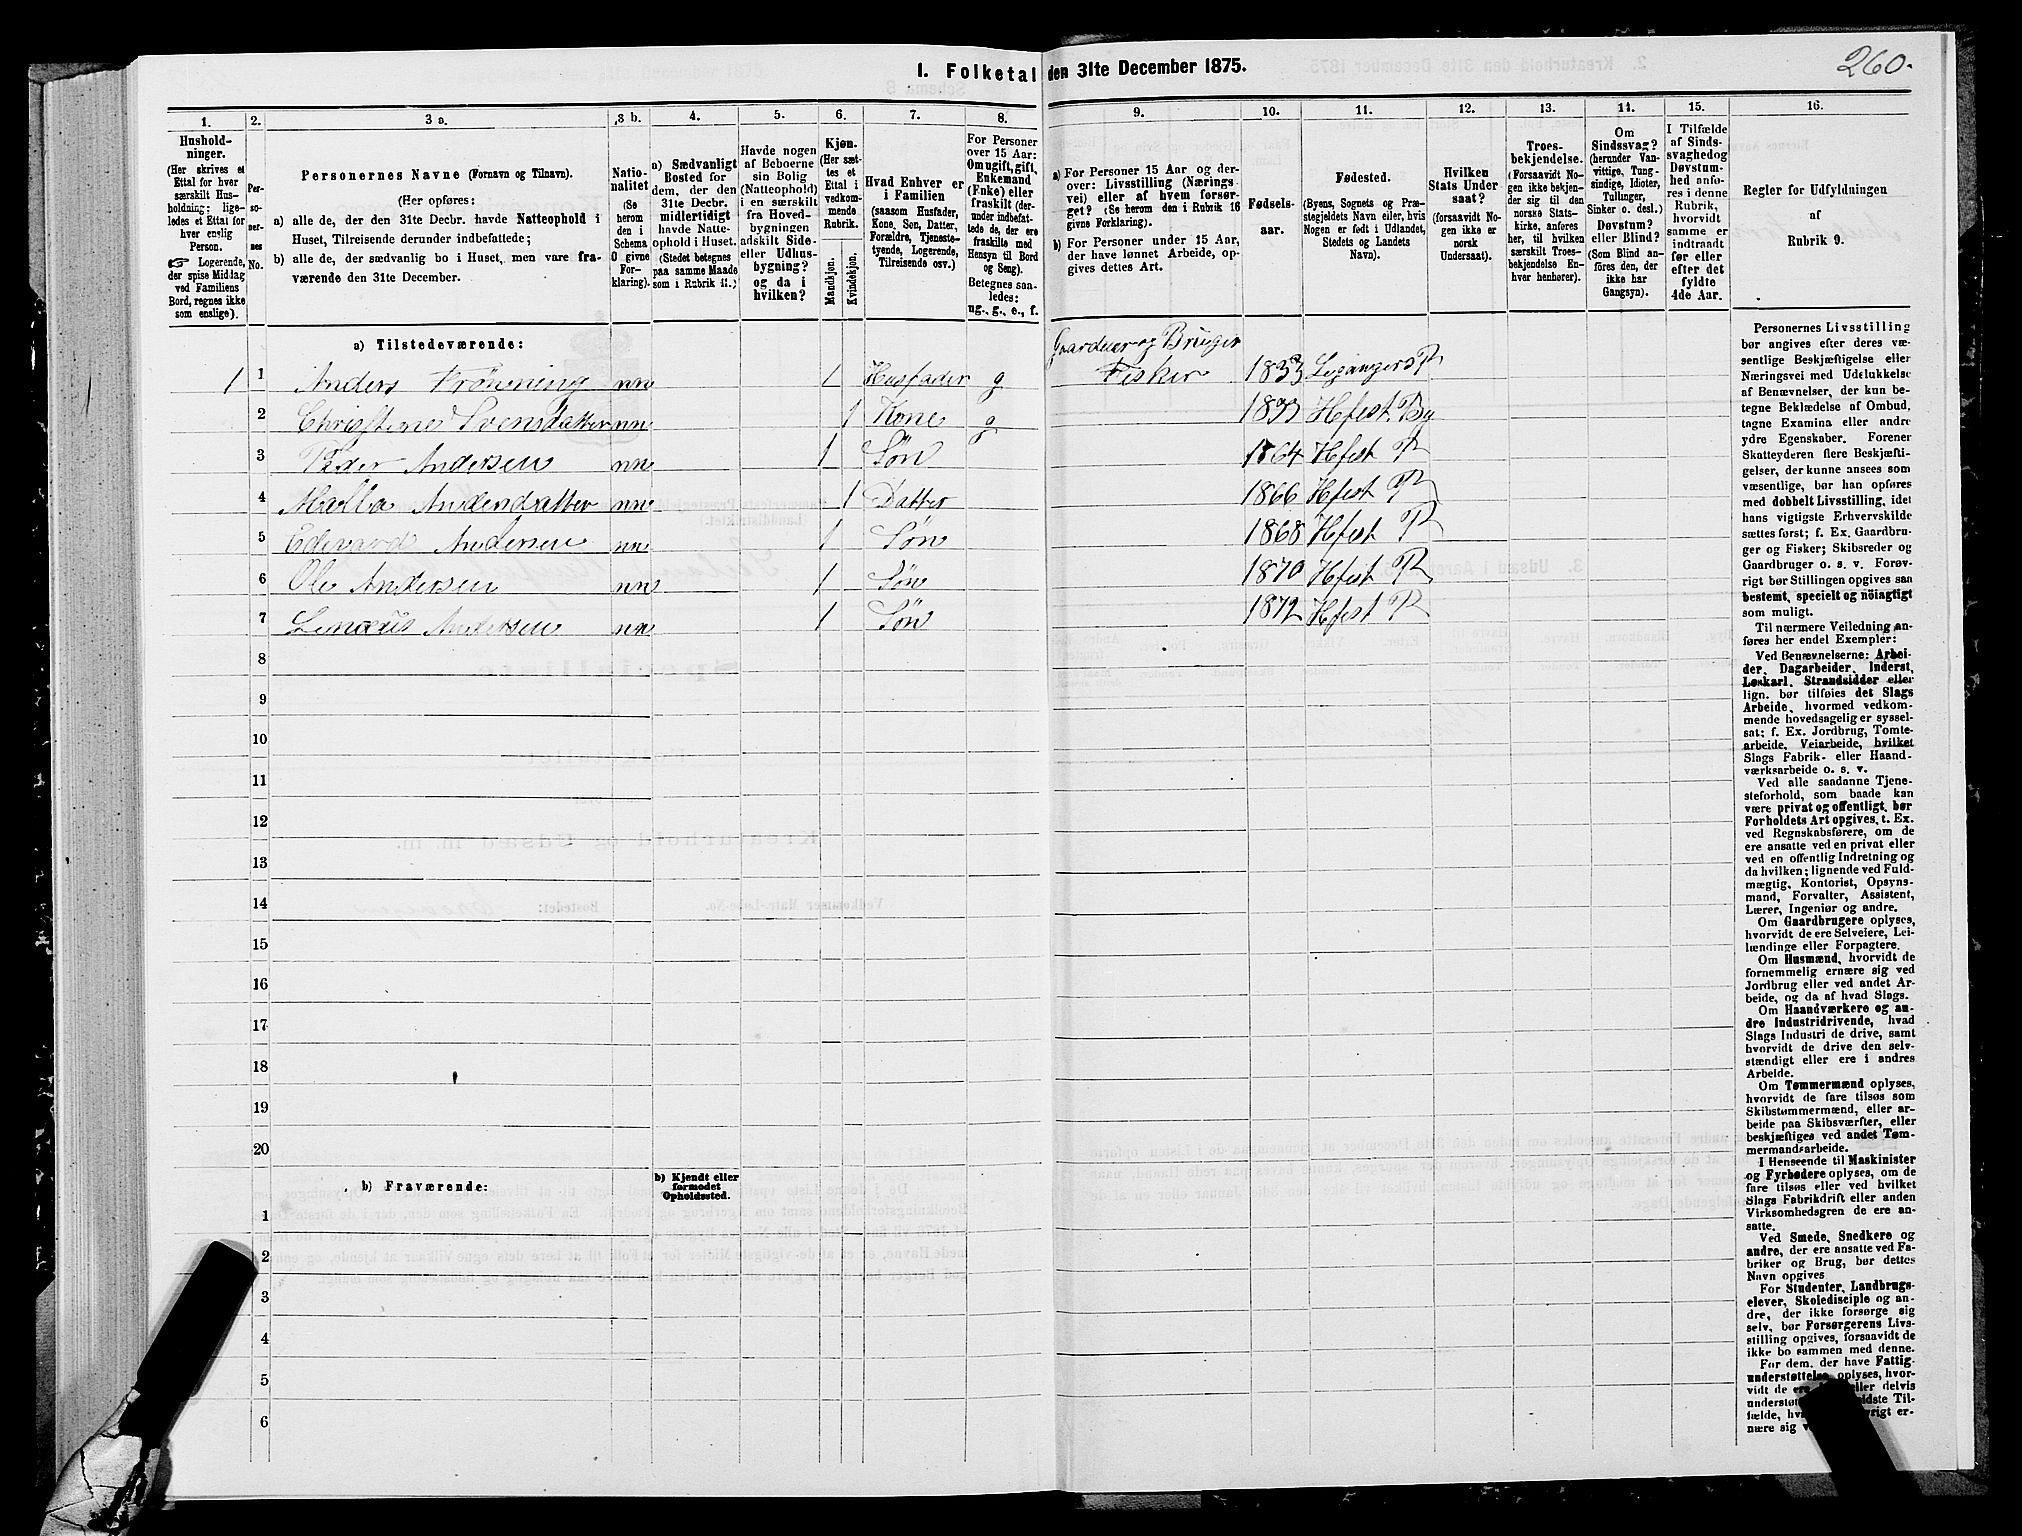 260.
1. Folketal den 31te December 1875.
1. 2. 3 a. 3 b. 4. 5. 6. 7. 8. 9. 10. 11. 12. 13. 14. 15. 16.
Hushold-
ninger.
(Her skrives et
Ettal for hver
særskilt Hus-
holdning; lige-
ledes et Ettal for
hver enslig
Person.
☞ Logerende,
der spise Middag
ved Familiens
Bord, regnes ikke
som enslige).
Per-
so-
ner-
nes
No.
Personernes Navne (Fornavn og Tilnavn).
(Her opføres:
a) alle de, der den 31te Decbr. havde Natteophold i
Huset, Tilreisende derunder indbefattede;
b) alle de, der sædvanlig bo i Huset, men vare fra-
værende den 31te December.
Natio-
nalitet
(Se
herom
den i
Schema
O givne
For-
klaring).
a) Sædvanligt
Bosted for
dem, der den
31te Decbr.
midlertidigt
havde Natte-
ophold i Huset.
(Stedet betegnes
paa samme Maade
som i Rubrik 11.)
Havde nogen
af Beboerne
sin Bolig
(Natteophold)
i en særskilt
fra Hoved-
bygningen
adskilt Side-
eller Udhus-
bygning?
og da i
hvilken?
Kjøn.
(Her sæt-
tes et
Ettal i
vedkom-
mende
Rubrik.
Mandkjøn.
Kvindekjøn.
Hvad Enhver er
i Familien
(saasom Husfader,
Kone, Søn, Datter,
Forældre, Tjeneste-
tyende, Logerende,
Tilreisende osv.)
For Personer
over 15 Aar:
Om ugift, gift,
Enkemand
(Enke) eller
fraskilt (der-
under indbefat-
tede de, der ere
fraskilte med
Hensyn til Bord
og Seng).
Betegnes saa-
ledes:
ug., g., e., f.
a) For Personer 15 Aar og der-
over: Livsstilling (Nærings-
vei) eller af hvem forsør-
get? (Se herom den i Rubrik 16
givne Forklaring).
b) For Personer under 15 Aar,
der have lønnet Arbeide, op-
gives dettes Art.
Fødsels-
aar.
Fødested.
(Byens, Sognets og Præ-
stegjeldets Navn eller, hvis
Nogen er født i Udlandet,
Stedets og Landets
Navn).
Hvilken
Stats Under-
saat?
(forsaavidt No-
gen ikke er
norsk
Undersaat).
Troes-
bekjendelse.
(Forsaavidt No-
gen ikke bekjen-
der sig til den
norske Stats-
kirke, anføres
her, til hvilken
særskilt Troes-
bekjendelse En-
hver henhører).
Om
Sindssvag?
(herunder Van-
vittige, Tung-
sindige, Idioter,
Sinker o. desl.)
Døvstum?
eller Blind?
(Som Blind an-
føres den, der
ikke har
Gangsyn).
I Tilfælde
af Sinds-
svaghed og
Døvstum-
hed anfø-
res i denne
Rubrik,
hvorvidt
samme er
indtraadt
før eller
efter det
fyldte
4de Aar.
Regler for Udfyldningen
af
Rubrik 9.
a) Tilstedeværende:
Gaardeier og Bruger
1 1 Anders Frönning nn 1 Husfader g Fisker 1833 Leganger P
2 Christine Svensdatter nn 1 Kone g Hfest. By
3 Peder Andersen nn 1 Søn 1864 Hfest P
4 Malla Andersdatter nn 1 Datter 1866 Hfest P
5 Edevard Andersen nn 1 Søn 1868 Hfest P
6 Ole Andersen nn 1 Søn 1870 Hfest P
7 Linæus Andersen nn 1 Søn 1872 Hfest P
8
9
10
11
12
13
14
15
16
17
18
19
20
b) Fraværende:
b) Kjendt eller
formodet
Opholdssted.
1
2
3
4
5
6
Personernes Livsstilling
bør angives efter deres væ-
sentlige Beskjæftigelse eller
Næringsvei med Udelukkelse
af Benævnelser, der kun be-
tegne Beklædelse af Ombud,
tagne Examina eller andre
ydre Egenskaber. Forener
Skatteyderen flere Beskjæfti-
gelser, der kunne ansees som
væsentlige, bør han opføres
med dobbelt Livsstilling, idet
hans vigtigste Erhvervskilde
sættes først; f. Ex. Gaardbru-
ger og Fisker; Skibsreder og
Gaardbruger o. s. v. Forøv-
rigt bør Stillingen opgives saa
bestemt, specielt og nöiagtigt
som muligt.
Til nærmere Veiledning an-
føres her endel Exempler:
Ved Benævnelserne: Arbei-
der, Dagarbeider, Inderst,
Løskarl, Strandsidder eller
lign. bør tilføies det Slags
Arbeide, hvormed vedkom-
mende hovedsagelig er syssel-
sat; f. Ex. Jordbrug, Tomte-
arbeide, Veiarbeide, hvilket
Slags Fabrik- eller Haand-
værksarbeide o. s. v.
Ved alle saadanne Tjene-
steforhold, som baade kan
være privat og offentligt, bør
Forholdets Art opgives, t. Ex.
ved Regnskabsførere, om de
ere ansatte ved en privat eller
ved en offentlig Indretning og
da hvilken; lignende ved Fuld-
mægtig, Kontorist, Opsyns-
mand, Forvalter, Assistent,
Lærer, Ingeniør og andre.
Om Gaardbrugere oplyses,
hvorvidt de ere Selveiere, Lei-
lændinge eller Forpagtere.
Om Husmænd, hvorvidt de
fornemmelig ernære sig ved
Jordbrug eller ved andet Ar-
beide, og da af hvad Slags.
Om Haandværkere og an-
dre Industridrivende, hvad
Slags Industri de drive, samt
hvorvidt de drive den selv-
stændigt eller ere i andres
Arbeide.
Om Tømmermænd oplyses,
hvorvidt de fare tilsøs som
Skibstømmermænd, eller ar-
beide paa Skibsværfter, eller
beskjæftiges ved andet Tøm-
mermandsarbeide.
I Henseende til Maskinister
og Fyrbødere oplyses, om de
fare tilsøs eller ved hvilket
Slags Fabrikdrift eller anden
Virksomhedsgren de ere an-
satte.
Ved Smede, Snedkere og
andre, der ere ansatte ved Fa-
briker og Brug, bør dettes
Navn opgives
For Studenter, Landbrugs-
elever, Skoledisciple og an-
dre, der ikke forsørge sig
selv, bør Forsørgerens Livs-
stilling opgives, forsaavidt de
ikke bo sammen med denne.
For dem, der have Fattig-
understøttelse, oplyses, hvor-
vidt de ere eller delvis
understøt sidste Til-
fælde, hv vrigt er-
nære sig v